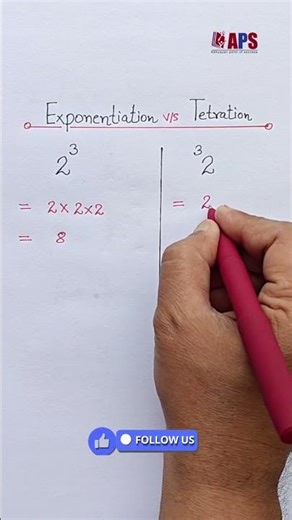 APS
Exponentiation v/s Tetration
2³
= 2 × 2 × 2
= 8
³2
= 2
FOLLOW US